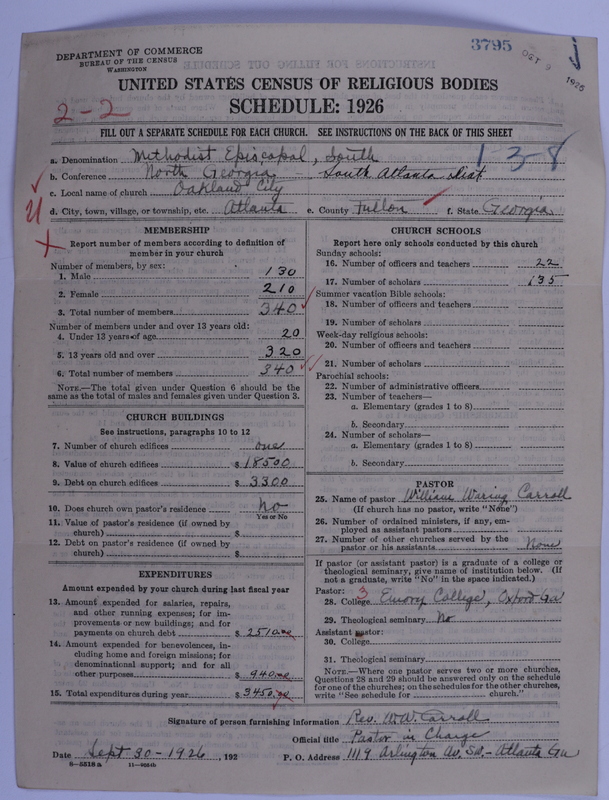 DEPARTMENT OF COMMERCE
BUREAU OF THE CENSUS
WASHINGTON
3795
OCT 9 1926
UNITED STATES CENSUS OF RELIGIOUS BODIES
SCHEDULE: 1926
2-2
FILL OUT A SEPARATE SCHEDULE FOR EACH CHURCH. SEE INSTRUCTIONS ON THE BACK OF THIS SHEET
1-3-8
a. Denomination Methodist Episcopal, South
b. Conference North Georgia - South Atlanta Dist
c. Local name of church Oakland City
d. City, town, village, or township, etc. Atlanta e. County Fulton f. State Georgia
MEMBERSHIP
Report number of members according to definition of
member in your church
Number of members, by sex:
1. Male 130
2. Female 210
3. Total number of members 340
Number of members under and over 13 years old:
4. Under 13 years of age 20
5. 13 years old and over 320
6. Total number of members 340
NOTE.—The total given under Question 6 should be the
same as the total of males and females given under Question 3.
CHURCH BUILDINGS
See instructions, paragraphs 10 to 12
7. Number of church edifices one
8. Value of church edifices $ 18500
9. Debt on church edifices $ 3300
10. Does church own pastor's residence No
Yes or No
11. Value of pastor's residence (if owned by
church) $
12. Debt on pastor's residence (if owned by
church) $
EXPENDITURES
Amount expended by your church during last fiscal year
13. Amount expended for salaries, repairs,
and other running expenses; for im-
provements or new buildings; and for
payments on church debt $ 2510.00
14. Amount expended for benevolences, in-
cluding home and foreign missions; for
denominational support; and for all
other purposes $ 940.00
15. Total expenditures during year $ 3450.00
CHURCH SCHOOLS
Report here only schools conducted by this church
Sunday schools:
16. Number of officers and teachers 22
17. Number of scholars 135
Summer vacation Bible schools:
18. Number of officers and teachers
19. Number of scholars
Week-day religious schools:
20. Number of officers and teachers
21. Number of scholars
Parochial schools:
22. Number of administrative officers
23. Number of teachers—
a. Elementary (grades 1 to 8)
b. Secondary
24. Number of scholars—
a. Elementary (grades 1 to 8)
b. Secondary
PASTOR
25. Name of pastor William Waring Carroll
(If church has no pastor, write "None")
26. Number of ordained ministers, if any, em-
ployed as assistant pastors
27. Number of other churches served by the
pastor or his assistants None
If pastor (or assistant pastor) is a graduate of a college or
theological seminary, give name of institution below. (If
not a graduate, write "No" in the space indicated.)
Pastor: 3
28. College Emory College, Oxford Ga
29. Theological seminary No
Assistant pastor:
30. College
31. Theological seminary
NOTE.—Where one pastor serves two or more churches,
Questions 28 and 29 should be answered only on the schedule
for one of the churches; on the schedules for the other churches,
write "See schedule for church."
Signature of person furnishing information Rev. W.W. Carroll
Official title Pastor in Charge
Date Sept 30-1926, 192 P. O. Address 1119 Arlington Av. SW.-Atlanta Ga
8-5518a